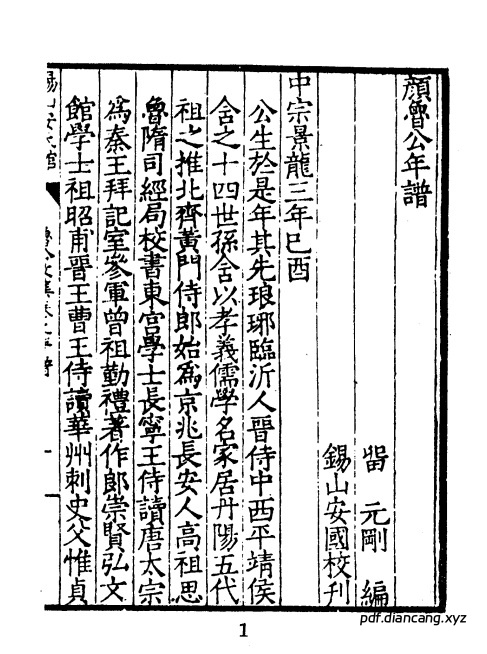 顏魯公年譜
留 元剛 編
錫山安國校刊
中宗景龍三年己酉
公生於是年其先琅琊臨沂人晉侍中西平靖侯
含之十四世孫含以孝義儒學名家居丹陽五代
祖之推北齊黃門侍郎始爲京兆長安人高祖思
魯隋司經局校書東宮學士長寧王侍讀唐太宗
爲秦王拜記室參軍曾祖勤禮著作郎崇賢弘文
館學士祖昭甫晉王曹王侍讀華州刺史父惟貞
錫山安氏館
一
pdf.diancang.xyz
1